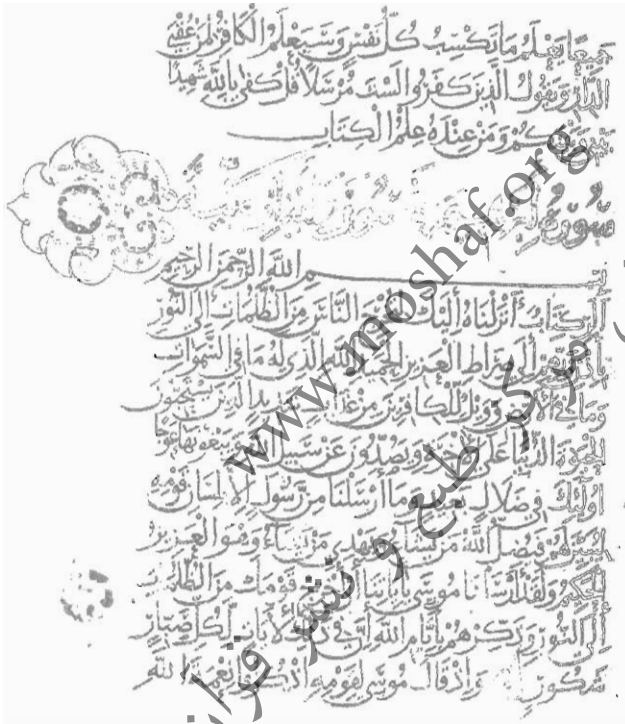 جميعا يعلم ما تكسب كل نفس وسيعلم الكافر لمن عقبى
الدار ويقول الذين كفروا لست مرسلا قل كفى بالله شهيدا
بيني وبينكم ومن عنده علم الكتاب
سورة
بسم الله الرحمن الرحيم
الر كتاب أنزلناه إليك لتخرج الناس من الظلمات إلى النور
بإذن ربهم إلى صراط العزيز الحميد الله الذي له ما في السموات
وما في الأرض وويل للكافرين من عذاب شديد الذين يستحبون
الحيوة الدنيا على الآخرة ويصدون عن سبيل الله ويبغونها عوجا
أولئك في ضلال بعيد وما أرسلنا من رسول إلا بلسان قومه
ليبين لهم فيضل الله من يشاء ويهدي من يشاء وهو العزيز
الحكيم ولقد أرسلنا موسى بآياتنا أن أخرج قومك من الظلمات
إلى النور وذكرهم بأيام الله إن في ذلك لآيات لكل صبار
شكور وإذ قال موسى لقومه اذكروا نعمة الله
www.moshaf.org
مركز طبع و نشر قرآن